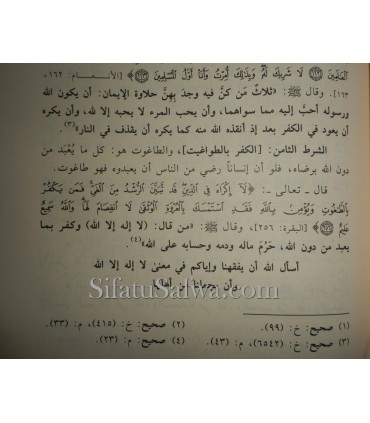 الْعَالَمِينَ لَا شَرِيكَ لَهُ وَبِذَلِكَ أُمِرْتُ وَأَنَا أَوَّلُ الْمُسْلِمِينَ ﴾ [الأنعام: ١٦٢،
١٦٣]. وقال ﷺ: «ثلاثٌ مَن كنَّ فيه وجدَ بِهِنَّ حلاوة الإيمان: أن يكون الله
ورسوله أحبَّ إليه مما سواهما، وأن يحب المرء لا يحبه إلا لله، وأن يكره
أن يعود في الكفر بعد إذ أنقذه الله منه كما يكره أن يقذف في النار»(٣).
الشرط الثامن: [الكفر بالطواغيت]، والطاغوت هو: كل ما يُعْبَد من
دون الله برضاه، فلو أن إنساناً رضي من الناس أن يعبدوه فهو طاغوت.
قال - تعالى -: ﴿لَا إِكْرَاهَ فِي الدِّينِ قَد تَّبَيَّنَ الرُّشْدُ مِنَ الْغَيِّ فَمَن يَكْفُرْ
بِالطَّاغُوتِ وَيُؤْمِن بِاللَّهِ فَقَدِ اسْتَمْسَكَ بِالْعُرْوَةِ الْوُثْقَىٰ لَا انفِصَامَ لَهَا وَاللَّهُ سَمِيعٌ
عَلِيمٌ﴾ [البقرة: ٢٥٦]، وقال ﷺ: «من قال: (لا إله إلا الله) وكفر بما
يعبد من دون الله، حَرُمَ ماله ودمه وحسابه على الله»(٤).
أسأل الله أن يفقهنا وإياكم في معنى لا إله إلا الله
وأن من أهلها
SifatuSafwa.com
(١) صحيح: خ: (٩٩). (٢) صحيح: خ: (٤١٥)، م: (٣٣).
(٣) صحيح: خ: (٦٥٤٢)، م: (٤٣). (٤) صحيح: م: (٢٣).